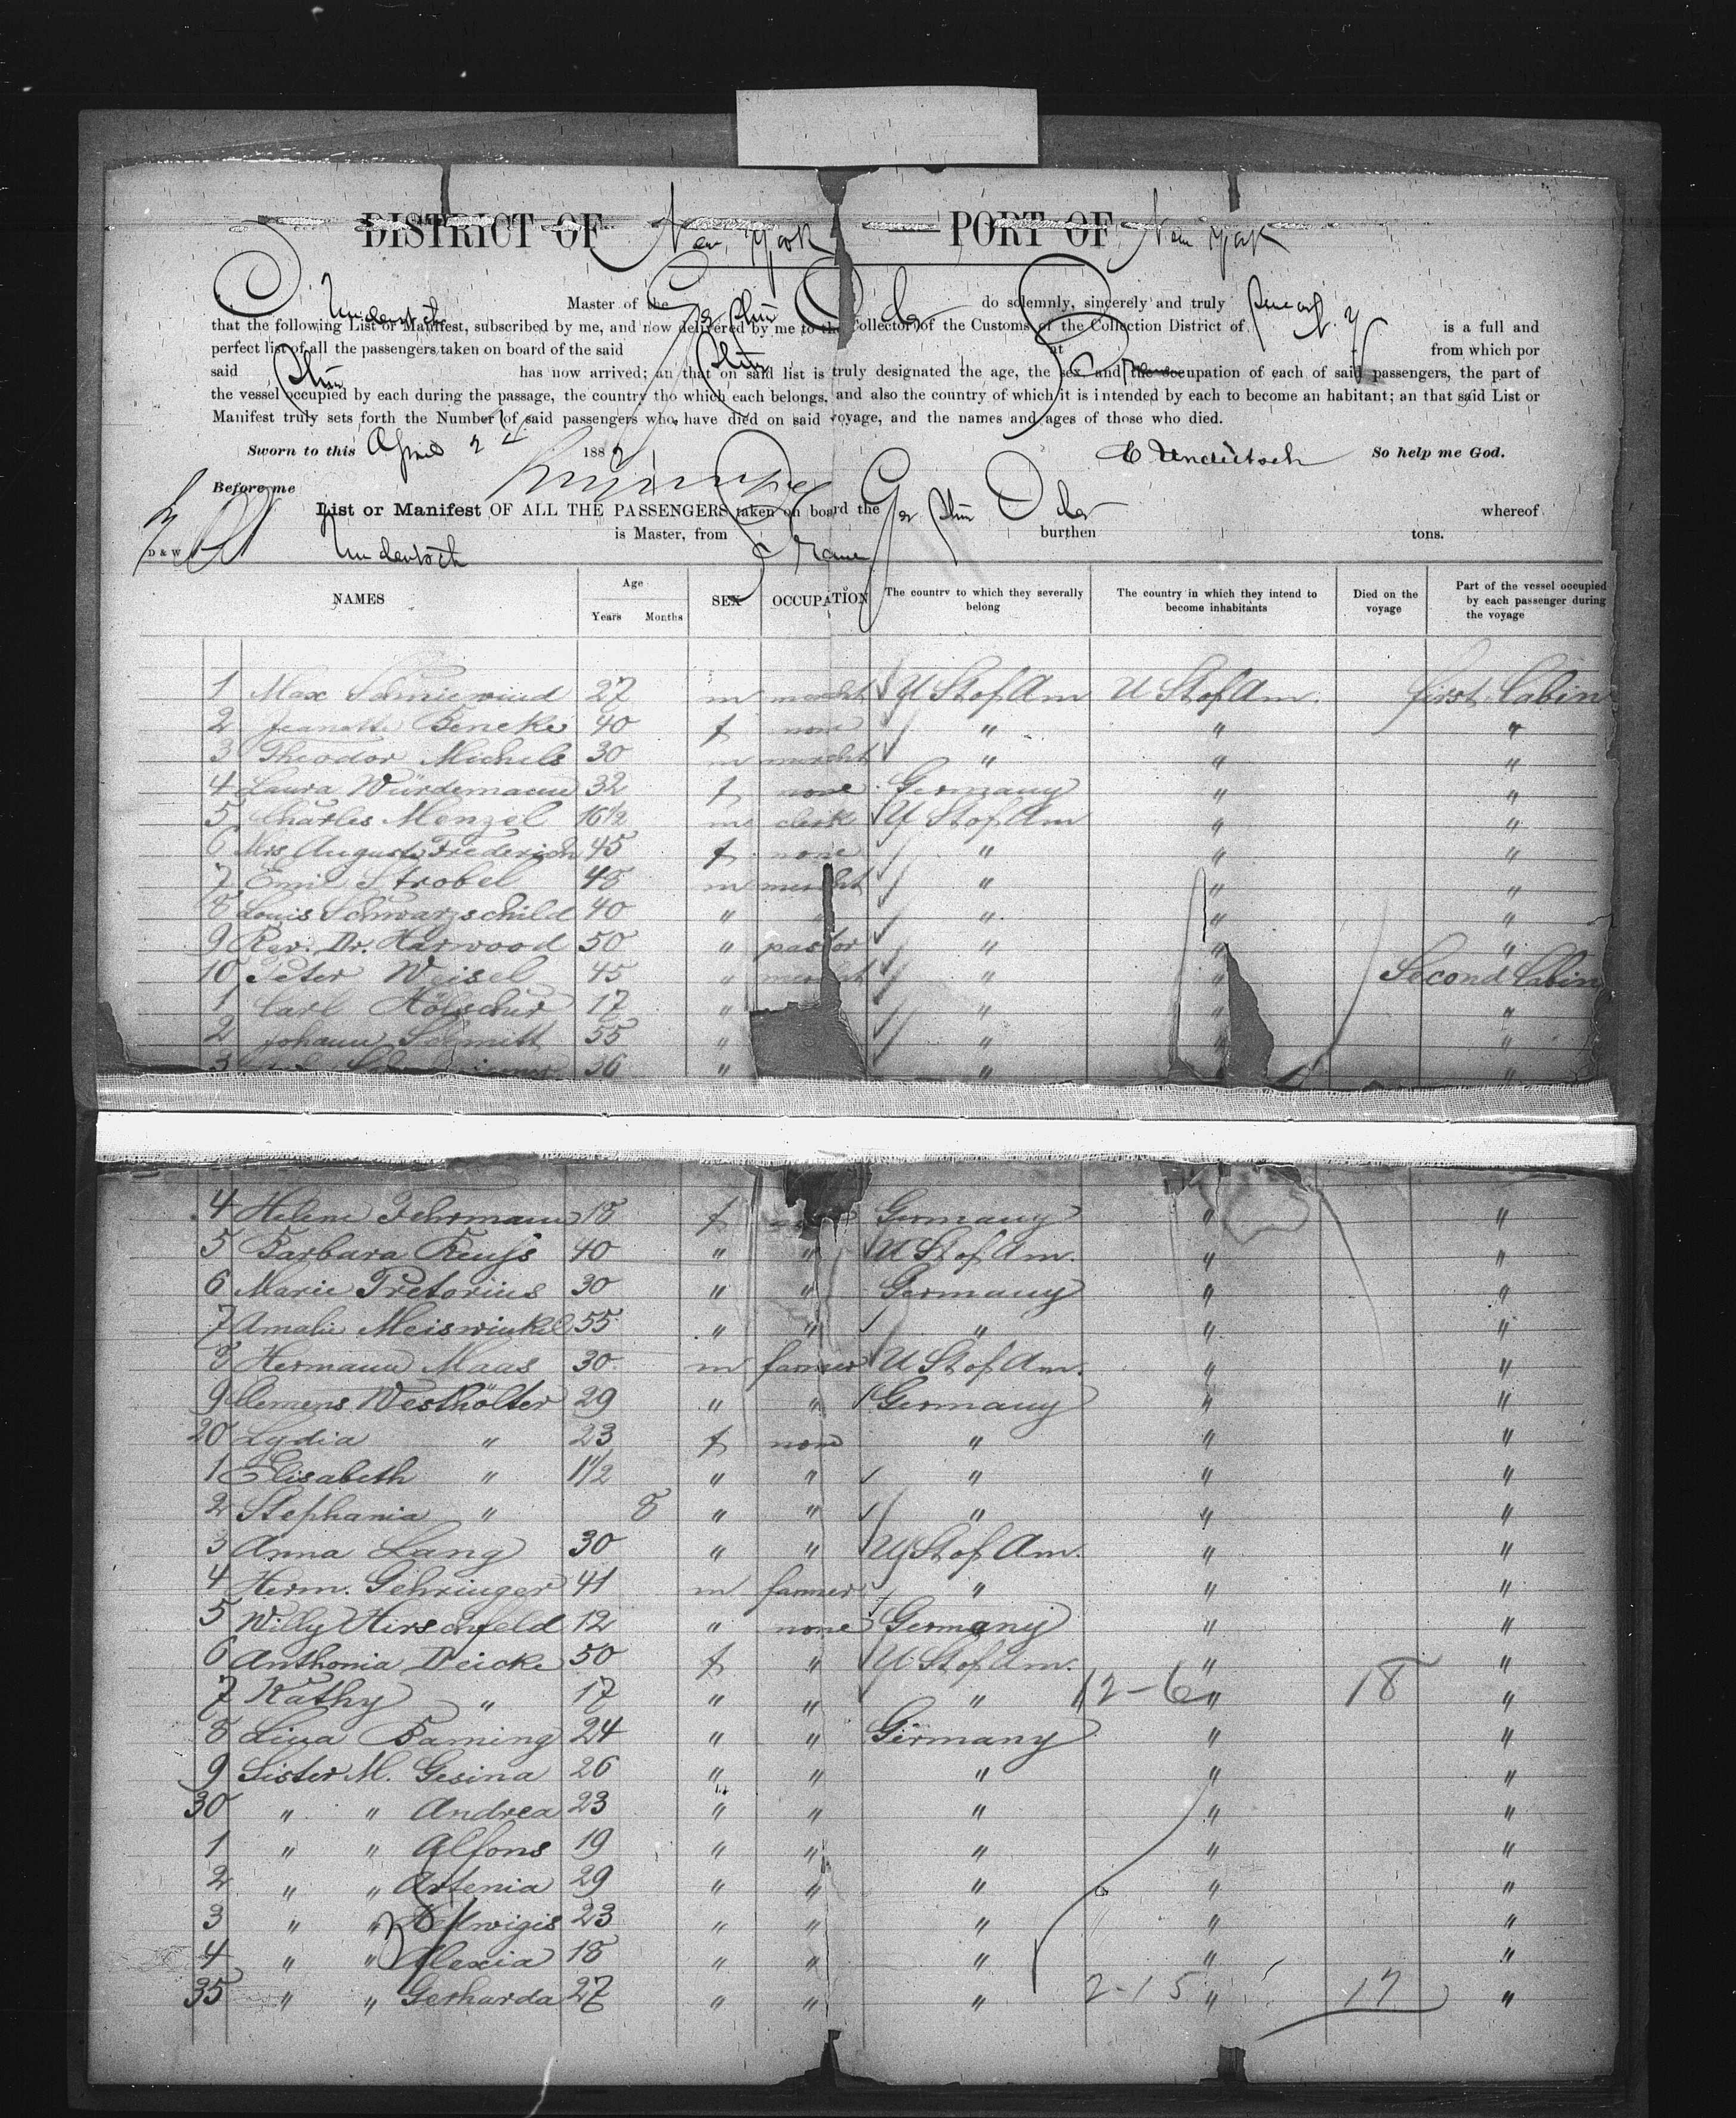 DISTRICT OF New York — PORT OF New York
I, Undeutsch Master of the Ger Str Oder do solemnly, sincerely and truly swear
that the following List or Manifest, subscribed by me, and now delivered by me to the Collector of the Customs of the Collection District of N. Y is a full and
perfect list of all the passengers taken on board of the said Str at Bremen from which por
said Str has now arrived; an that on said list is truly designated the age, the sex and the occupation of each of said passengers, the part of
the vessel occupied by each during the passage, the country tho which each belongs, and also the country of which it is intended by each to become an habitant; an that said List or
Manifest truly sets forth the Number of said passengers who, have died on said voyage, and the names and ages of those who died.
Sworn to this April 24 188 C Undeutsch So help me God.
Before me
List or Manifest OF ALL THE PASSENGERS taken on board the Ger Str Oder whereof
D & W Undeutsch is Master, from Bremen burthen tons.
NAMES Age Years Months SEX OCCUPATION The country to which they severally belong The country in which they intend to become inhabitants Died on the voyage Part of the vessel occupied by each passenger during the voyage
1 Max 27 m mercht U St of Am U St of Am. first Cabin
2 Jeanette Beneke 40 f none " " "
3 Theodor Michels 30 m mercht " " "
4 Laura Würdemann 32 f none Germany " "
5 Charles Menzel 16 1/2 m clerk U St of Am " "
6 Mrs Auguste Frederich 45 f none " " "
7 Emil Strobel 48 m mercht " " "
8 Louis Schwarzschild 40 " " " " "
9 Rev. Dr. Harwood 50 " pastor " " "
10 Peter Weisel 45 " mercht " " Second Cabin
1 Carl Hölscher 17 " " " "
2 Johann Schmitt 55 " " " "
3 36 " " "
4 Helene Fehrmann 18 f Germany " "
5 Barbara Reuss 40 " " U St of Am. " "
6 Marie Pretorius 30 " " Germany " "
7 Amalie Meiswinkel 55 " " " " "
8 Hermann Maas 30 m farmer U St of Am. " "
9 Clemens Westhölter 29 " " Germany " "
20 Lydia " 23 f none " " "
1 Elisabeth " 1 1/2 " " " " "
2 Stephania " 8 " " " " "
3 Anna Lang 30 " " U St of Am. " "
4 Herm. Gehringer 41 m farmer " " "
5 Willy Hirschfeld 12 " none Germany " "
6 Anthonia Deicke 50 f " U St of Am. " "
7 Kathy " 17 " " " 12-6 " 18 "
8 Lina Baming 24 " " Germany " "
9 Sister M. Gesina 26 " " " " "
30 " " Andrea 23 " " " " "
1 " " Alfons 19 " " " " "
2 " " Artenia 29 " " " " "
3 " " Hedwigis 23 " " " " "
4 " " Alexia 18 " " " " "
35 " " Gerharda 27 " " " 2-15 " 17 "